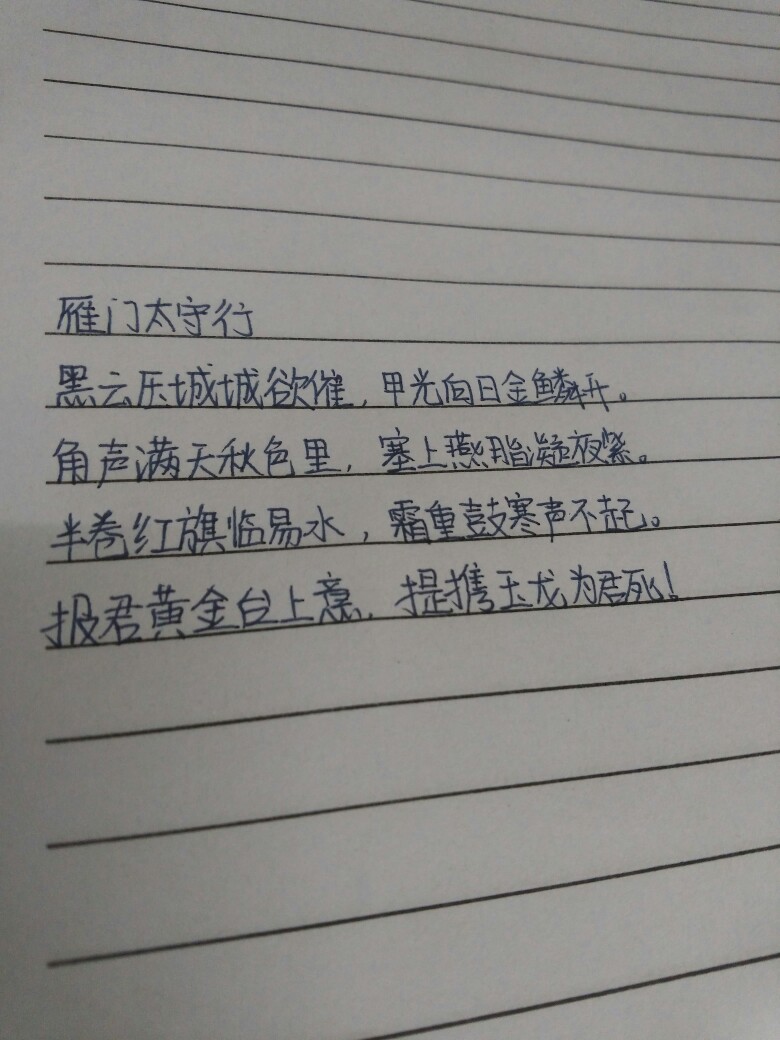 雁门太守行
黑云压城城欲催，甲光向日金鳞开。
角声满天秋色里，塞上燕脂凝夜紧。
半卷红旗临易水，霜重鼓寒声不起。
报君黄金台上意，提携玉龙为君死！